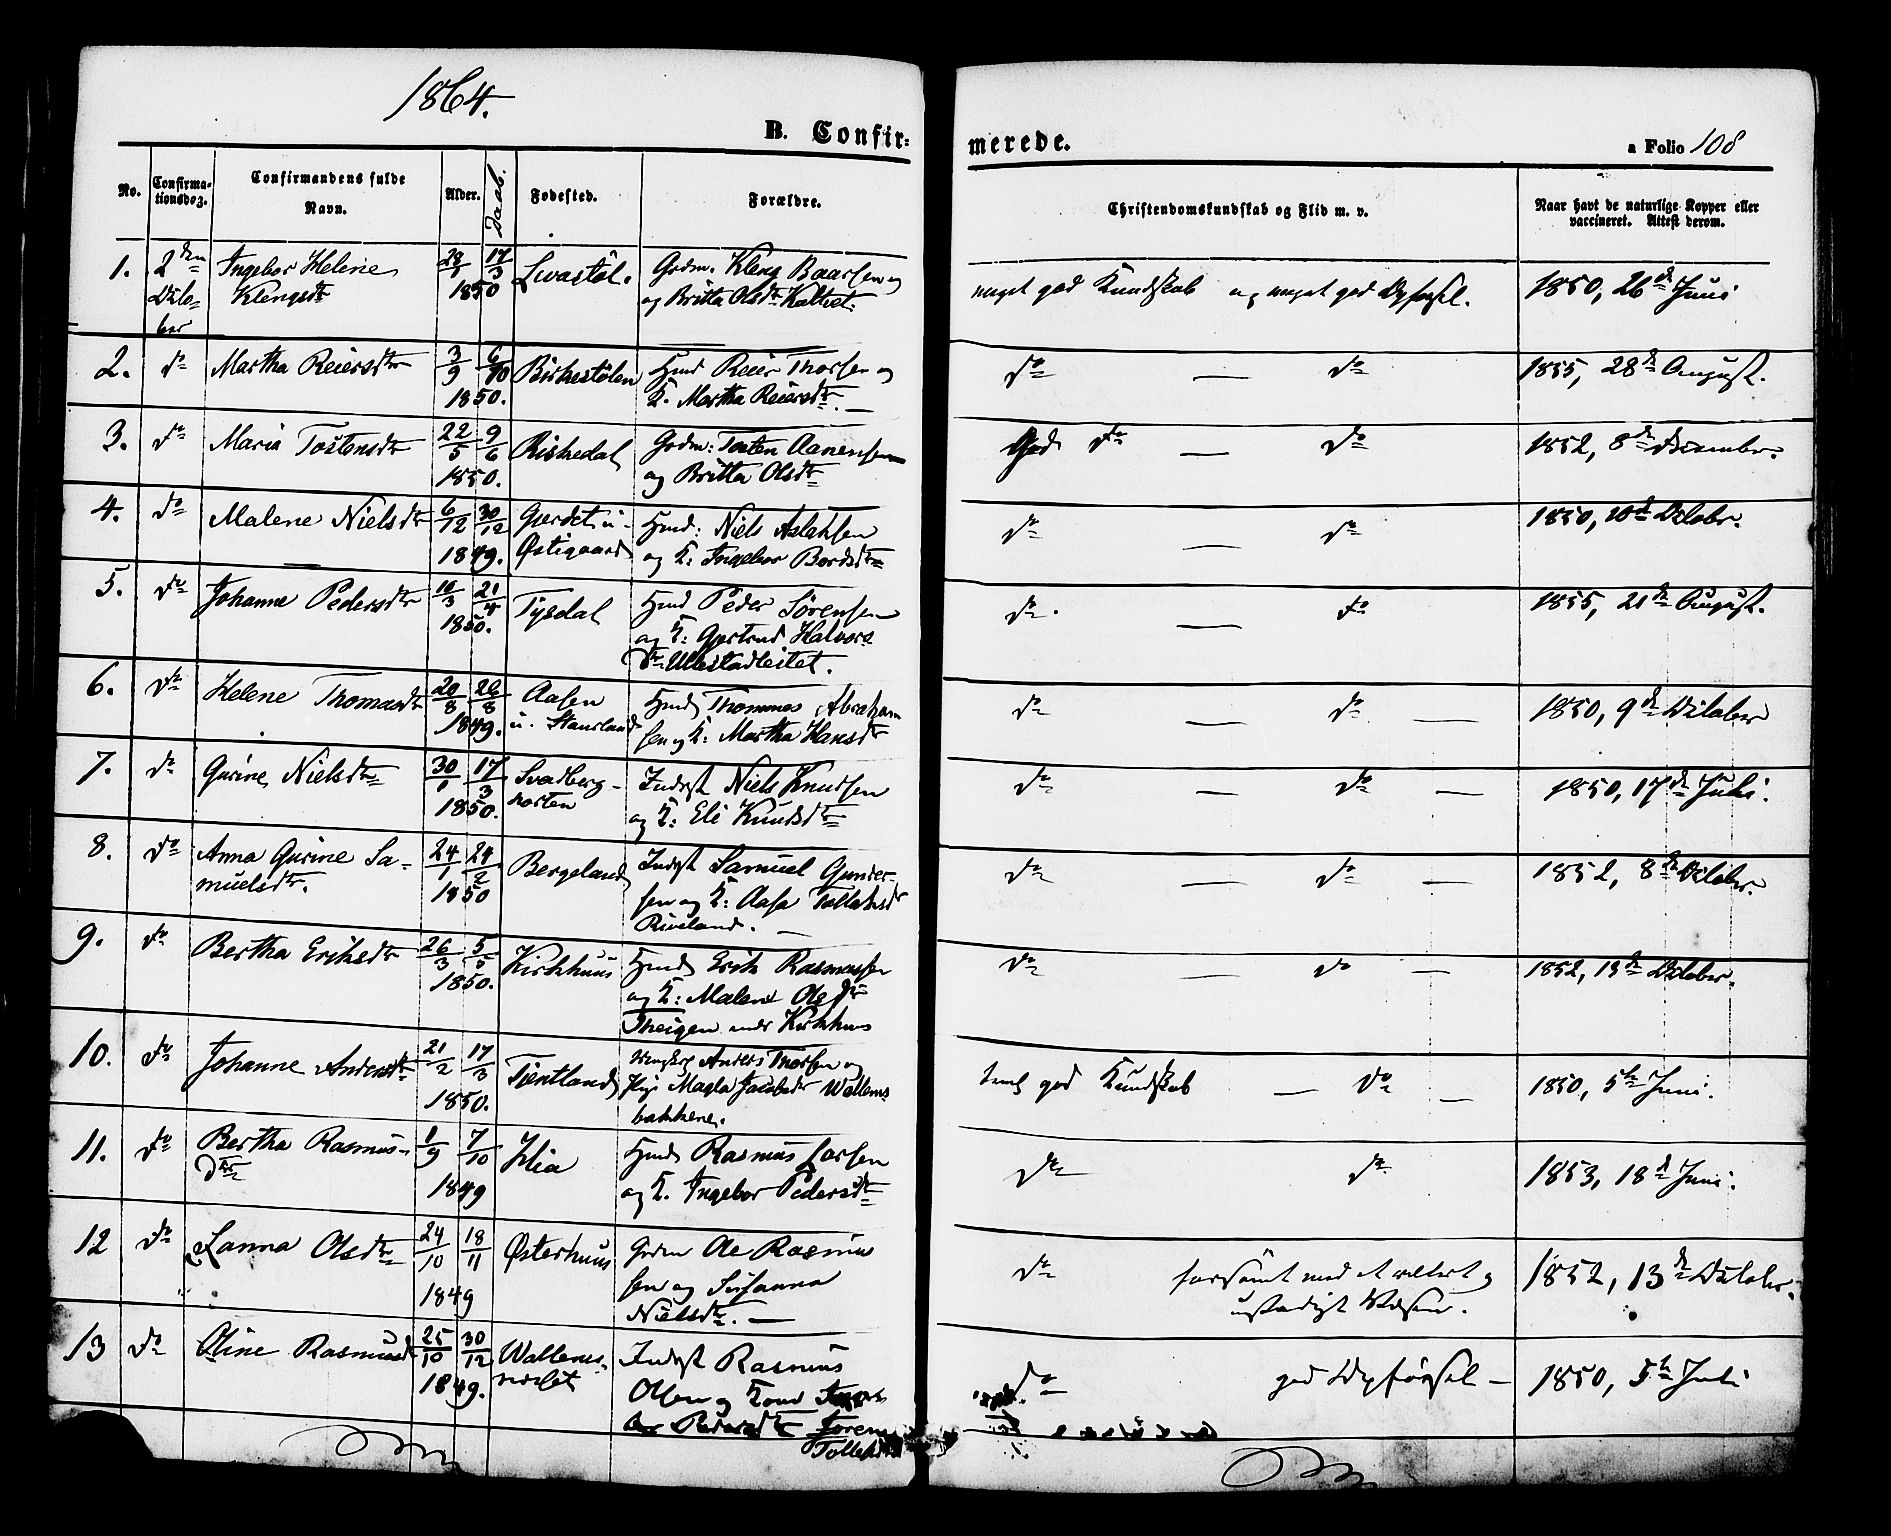 1864.
B. Confirmerede.
a Folio 108
No.
Confirmationsdag.
Confirmandens fulde Navn.
Alder.
Daab.
Fødested.
Forældre.
Christendomskundskab og Flid m. v.
Naar havt de naturlige Kopper eller vaccineret. Attest derom.
1. 2den Octobar Ingebor Helene Klengsdtr 28/1 17/3 1850 Lvastøl. Grdm. Kleng Baarsen og
og Britta Olsdtr Kaltvet meget god Kundskab og meget god Opførsel. 1850, 26de Juni
2. do Martha Reiersdtr 3/9 6/10 1850. Birkestølen Hmd Reier Thorsen og
K. Martha Reiersdtr. — do — do 1855, 28de August.
3. do Maria Tostensdtr 22/5 9/6 1850. Riskedal Grdm: Tosten Aanensen
og Britta Olsdtr God do — do 1852, 8de Desembr.
4. do Malene Nielsdtr 6/12 30/12 1849. Gjerdet u. Østigaard Hmd: Niels Aslaksen
og K: Ingebor Bordsdtr do — do 1850, 10de Octobr.
5. do Johanne Pedersdtr 10/3 21/4 1850. Tysdal Hmd Peder Sørensen
og K: Gjertrud Halvors
dtr Ullestadleitet. do. — do 1855, 21de August.
6. do Helene Thomasdtr 20/8 26/8 1849. Aasen u. Staurland Hmd Thommes Abraham
sen og K: Martha Hansdtr do — do — 1850, 9de Octobr
7. do Gurine Nielsdtr 30/1 17/3 1850. Svadberg- Inderst Niels Knudsen
og K: Eli Knudsdtr do — do — 1850, 17de Juli.
8. do Anna Gurine Samuelsdtr. 24/1 24/2 1850 Bergeland Inderst Samuel Gunder-
sen og K: Aasa Tollaksdtr
Riveland. — do — do — 1852, 8de Octobr.
9. do Bertha Eriksdtr 26/3 5/5 1850. Kirkhuus Hmd Erik Rasmussen
og K: Malene Olsdtr
Theigen under Kirkhuus do — do — 1852, 13de Octobr.
10. do Johanne Andersdtr 21/2 17/3 1850. Tjentland Anders Thorsen og
Pige Magla Jacobsdtr Wallems
bakkene. god Kundskab — do — 1850, 5te Juni.
11. do Bertha Rasmus-
dtr 1/9 7/10 1849 Hia Hmd Rasmus Larsen
og K. Ingebor Pedersdtr do do 1853, 18de Juni.
12 do Lanna Olsdtr 24/10 18/11 1849 Østerhuus Grdm Ole Rasmus
sen og Susanna
Nielsdtr. — do forsømt med et og
ustadigt Væsen. 1852, 13de Octobr.
13 do Oline Rasmusdtr 25/10 30/12 1849. Wallems- Inderst Rasmus
Olsen og Kone
Reiersdtr Joren
Tolleks do god Opførsel — 1850, 5te Juli